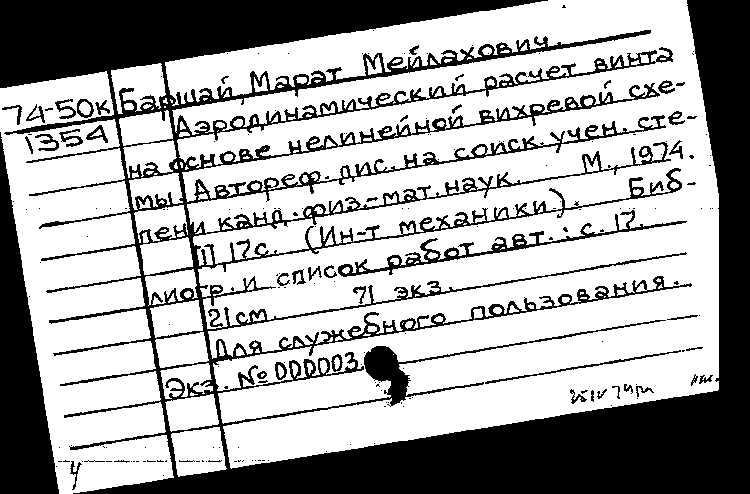 74-50к Баршай, Марат Мейлахович.
1354 Аэродинамический расчет винта
на основе нелинейной вихревой схе-
мы. Автореф. дис. на соиск. учен. сте-
пени канд. физ.-мат. наук. М., 1974.
[1], 17с. (Ин-т механики). Биб-
лиогр. и список работ авт.: с. 17.
21см. 71 экз.
Для служебного пользования.
Экз. № 000003.